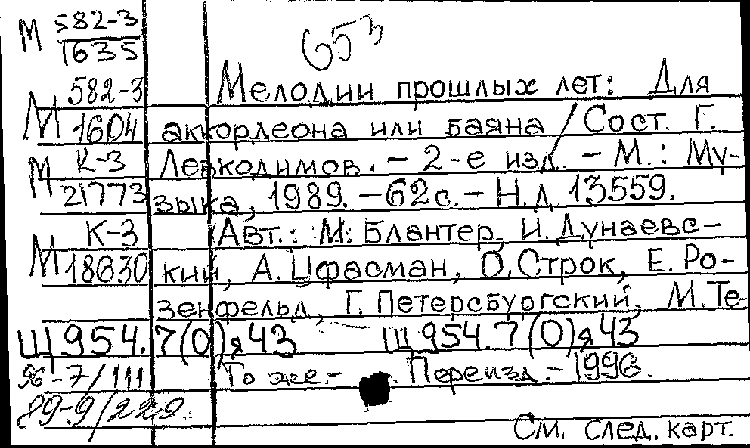 М 582-3
1635
653
М 582-3 Мелодии прошлых лет: Для
1604 аккордеона или баяна / Сост. Г.
М К-3 Левкодимов. - 2-е изд. - М.: Му-
21773 зыка, 1989. - 62 с. - Н.д. 13559.
М К-3 Авт.: М. Блантер, И. Дунаевс-
18630 кий, А. Цфасман, О. Строк, Е. Ро-
зенфельд, Г. Петерсбургский, М. Те
Щ 954.7(0)я43 Щ 954.7(0)я43
96-7/111 То же.- Переизд.- 1996.
89-9/229
См. след. карт.